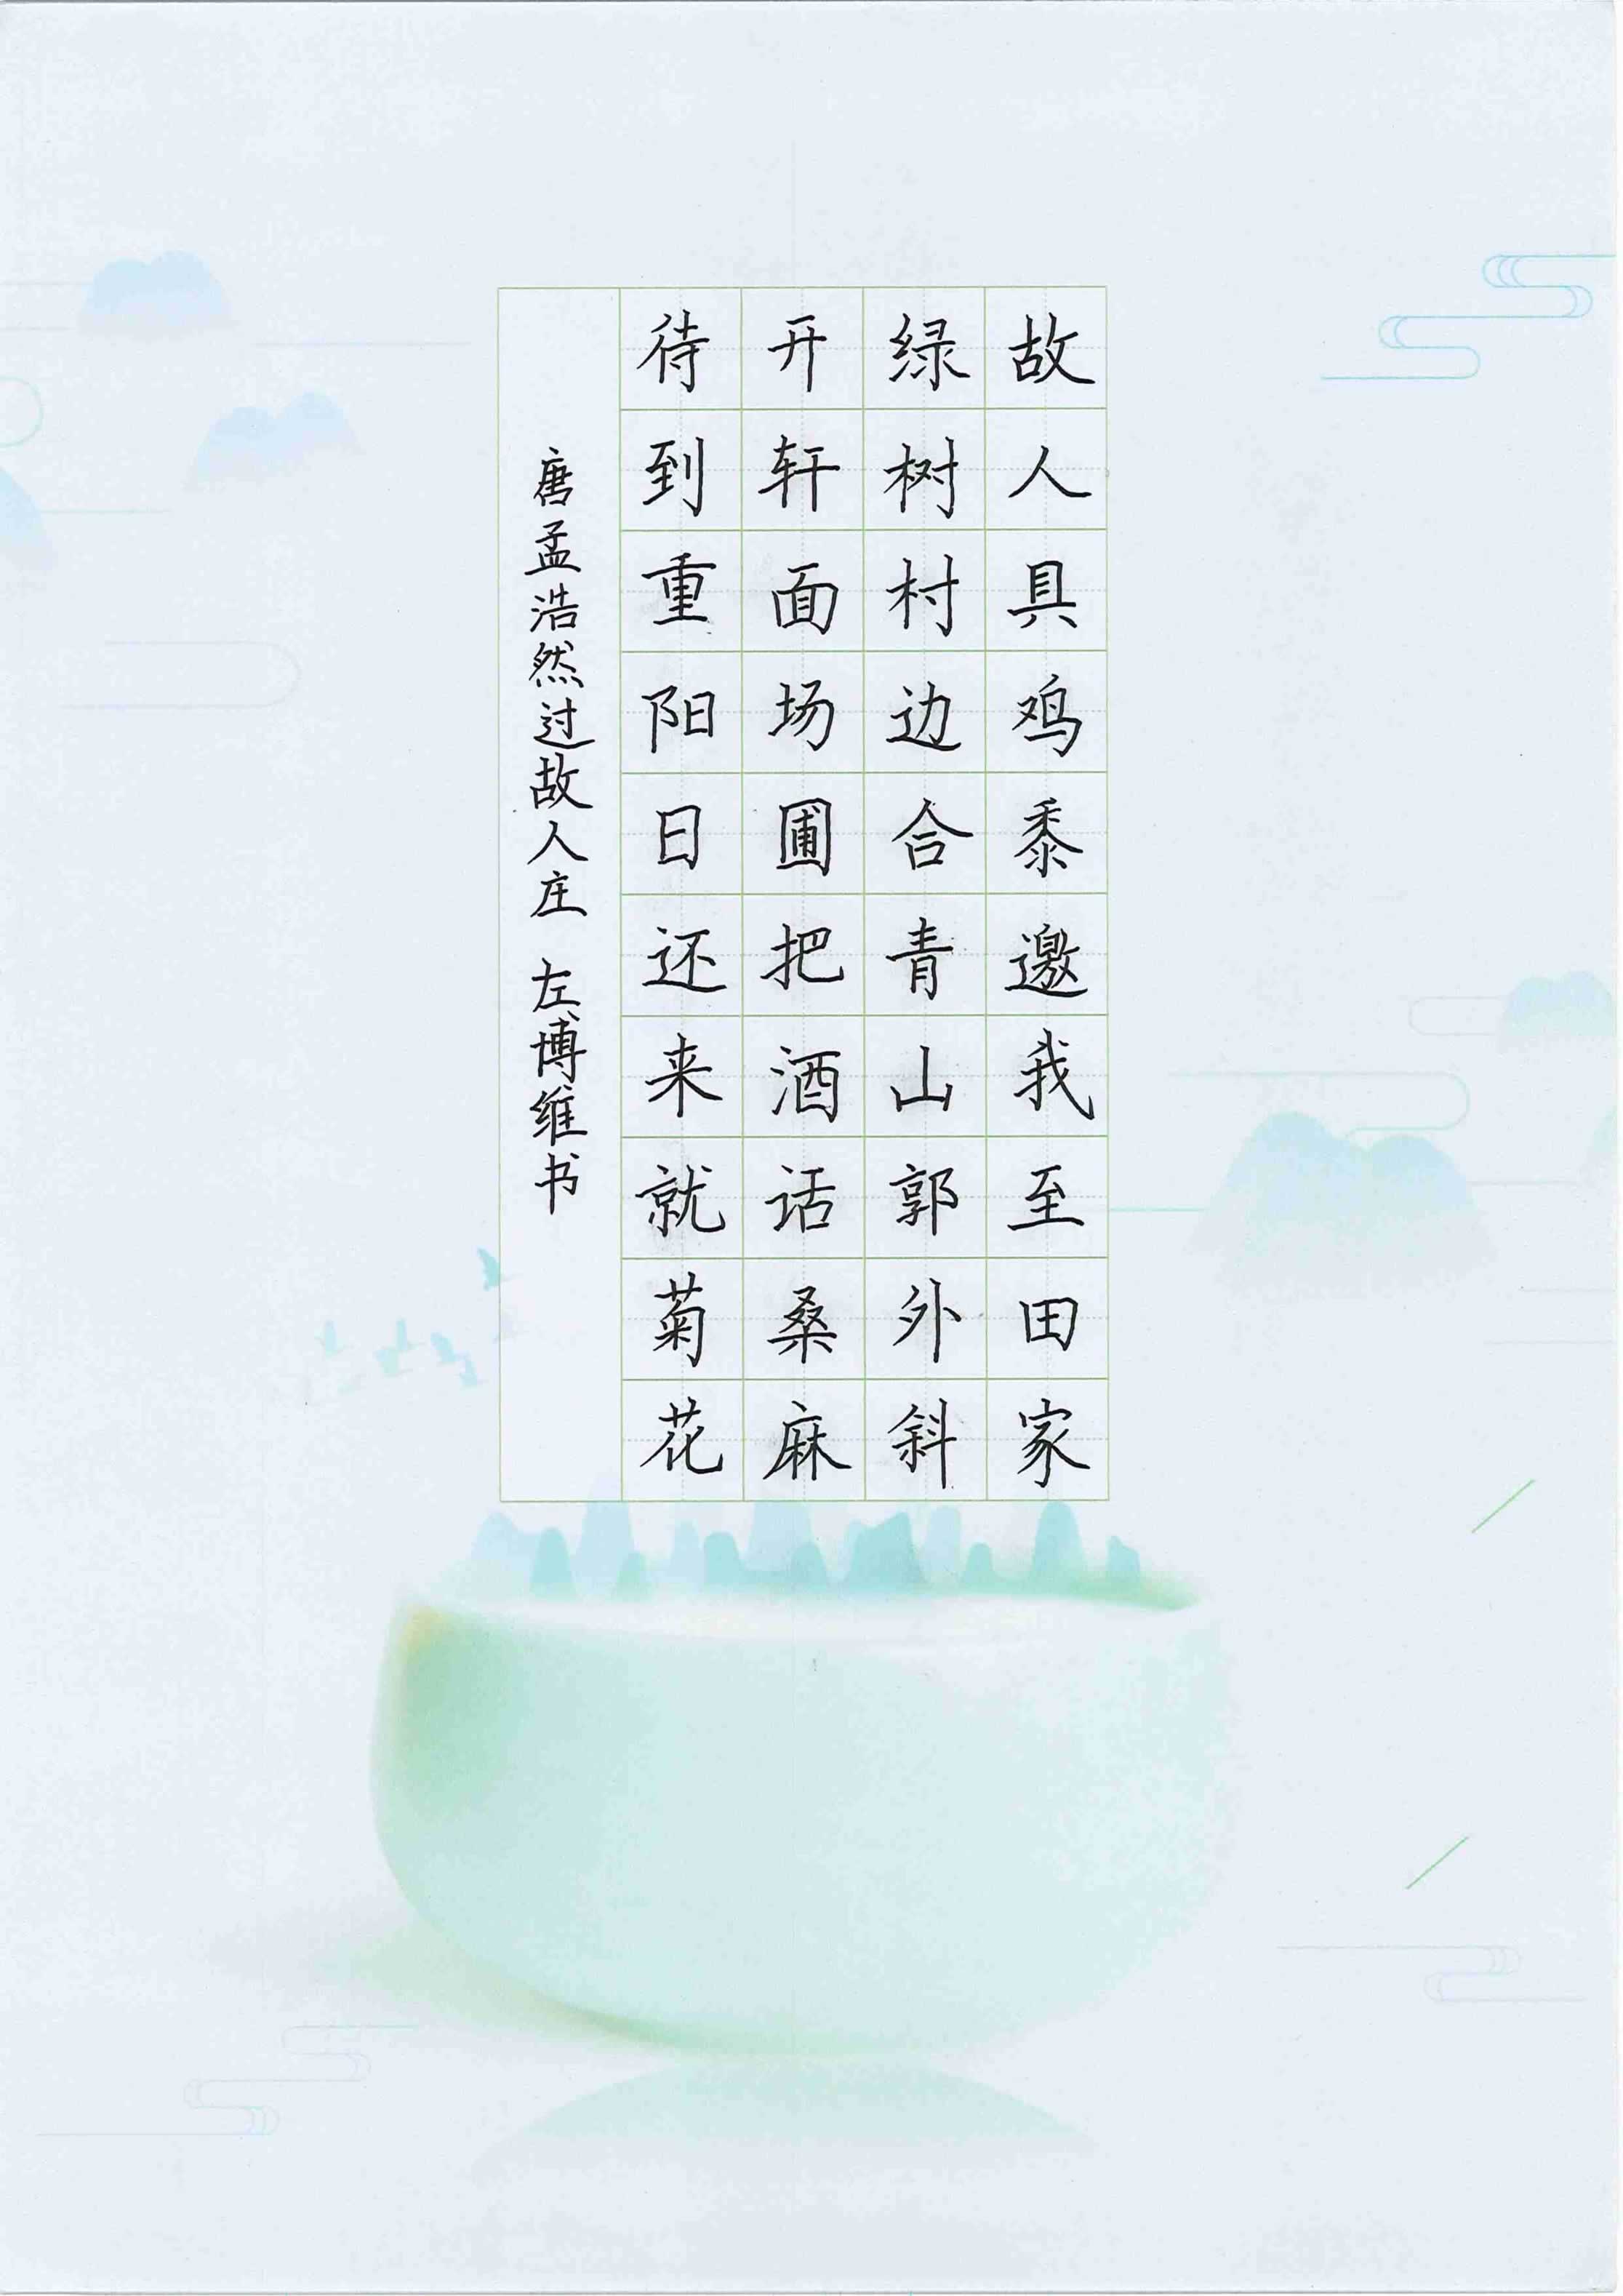 故人具鸡黍邀我至田家
绿树村边合青山郭外斜
开轩面场圃把酒话桑麻
待到重阳日还来就菊花
唐孟浩然过故人庄 左博维书